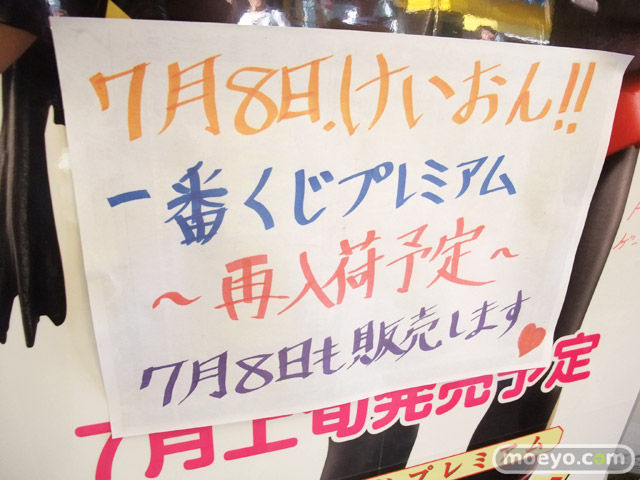 7月8日、けいおん!!
一番くじプレミアム
～再入荷予定～
7月8日も販売します♥
7月上旬発売予定
プレミアム
moeyo.com